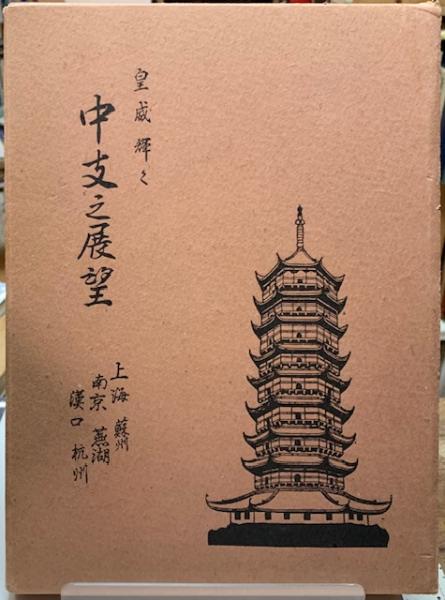 皇威輝々
中支之展望
上海 蘇州
南京 蕪湖
漢口 杭州